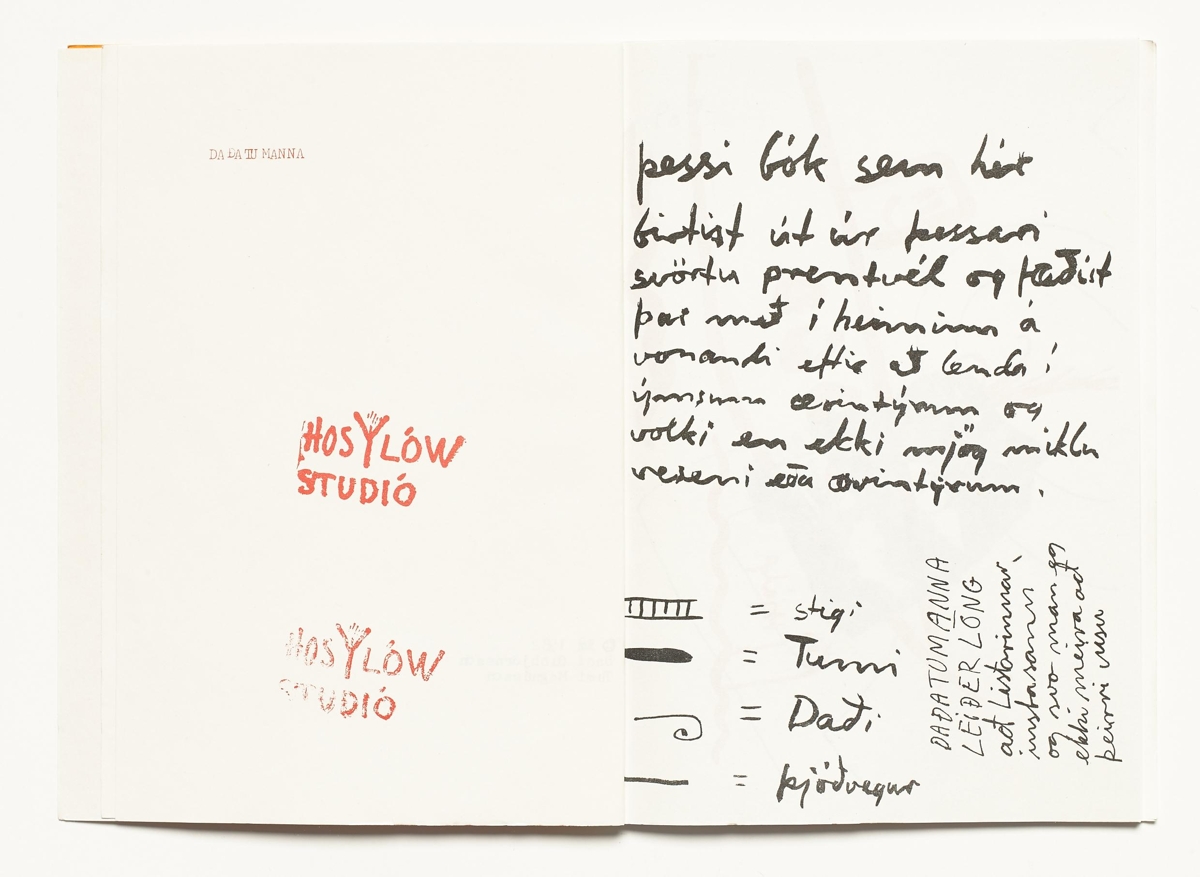 DAÐATUMANNA
HOSYLÓW
STUDIÓ
HOSYLÓW
STUDIÓ
þessi bók sem hér
birtist út úr þessari
svörtu prentvél og fæðist
þar með í heiminn á
vonandi eftir að lenda í
ýmsum ævintýrum og
volki en ekki mjög miklu
veseni eða ævintýrum.
= stigi
= Tumi
= Daði
= þjóðvegur
DAÐATUMANNA
LEIÐER LÖNG
að Listarinnar,
insta sann
og svo man eg
ekki meira að
þeirri vísu